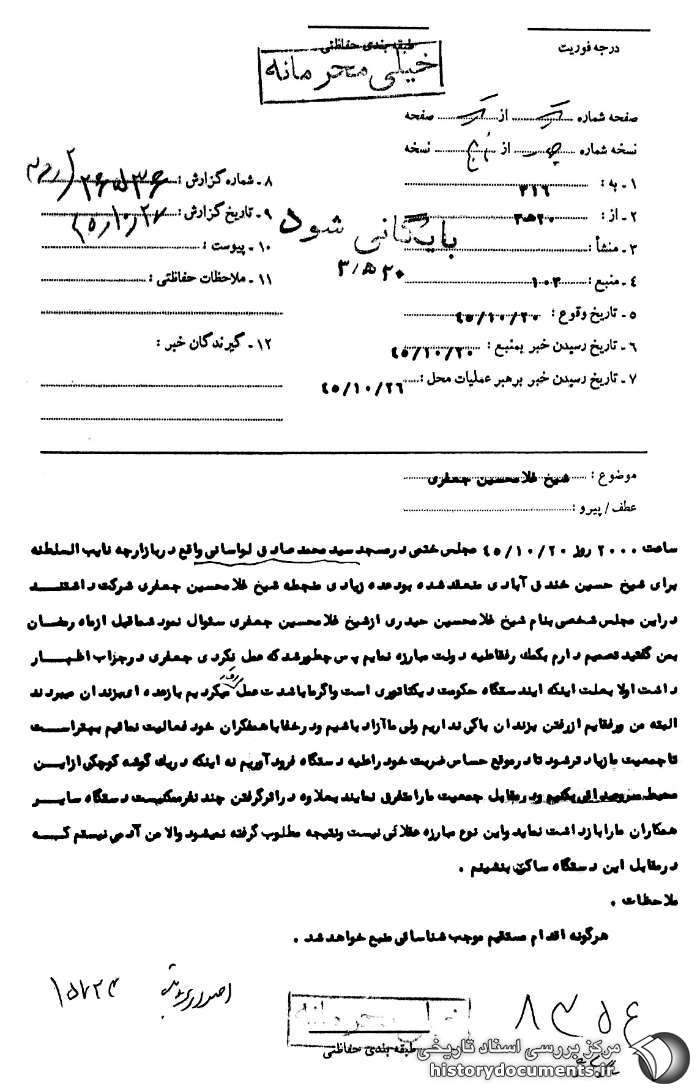 درجه فوریت
طبقه بندی حفاظتی
خیلی محرمانه
صفحه شماره یک از یک صفحه
نسخه شماره از نسخه
۱ـ به : ۳۱۶
۲ـ از : ۲۰ه۳
۳ـ منشأ :
۴ـ منبع : ۱۰۲
۵ـ تاریخ وقوع : ۴۵/۱۰/۲۰
۶ـ تاریخ رسیدن خبر بمنبع : ۴۵/۱۰/۲۰
۷ـ تاریخ رسیدن خبر برهبر عملیات محل : ۴۵/۱۰/۲۶
۸ـ شماره گزارش :
۹ـ تاریخ گزارش : ۴۵/۱۰/۲۷
۱۰ـ پیوست :
۱۱ـ ملاحظات حفاظتی :
۱۲ـ گیرندگان خبر :
بایگانی شود
۲۰ه۳
موضوع : شیخ غلامحسین جعفری
عطف/پیرو :
ساعت ۲۰۰۰ روز ۴۵/۱۰/۲۰ مجلس ختمی درمسجد سید محمد صادق لواسانی واقع دربازارچه نایب السلطنه
برای شیخ حسین خندق آبادی منعقد شده بودعده زیادی منجمله شیخ غلامحسین جعفری شرکت داشتند
دراین مجلس شخصی بنام شیخ غلامحسین حیدری ازشیخ غلامحسین جعفری سئوال نمود شماقبل ازماه رمضان
بمن گفتید تصمیم دارم بکمک رفقاعلیه دولت مبارزه نمایم پس چطورشد که عمل نکردی جعفری درجواب اظهار
داشت اولا بعلت اینکه ایندستگاه حکومت دیکتاتوری است واگرماباشدت عمل میکردیم بازعده ای بزندان میبردند
البته من ورفقایم ازرفتن بزندان باکی نداریم ولی ماآزاد باشیم ودرخفاباهمفکران خود فعالیت نمائیم بهتراست
تاجمعیت مازیادترشود تادرموقع حساس ضربت خودراعلیه دستگاه فرودآوریم نه اینکه دریک گوشه کوچکی ازاین
محیط سروصدائی بکنیم ودرمقابل جمعیت مارامتفرق نمایند بعلاوه دراثرگرفتن چند نفرممکنیست دستگاه سایر
همکاران مارابازداشت نماید واین نوع مبارزه عقلائی نیست ونتیجه مطلوب گرفته نمیشود والا من آدمی نیستم که
درمقابل این دستگاه ساکت بنشینم .
ملاحظات .
هرگونه اقدام مستقیم موجب شناسائی منبع خواهد شد .
خیلی محرمانه
طبقه بندی حفاظتی
مرکز بررسی اسناد تاریخی
historydocuments.ir